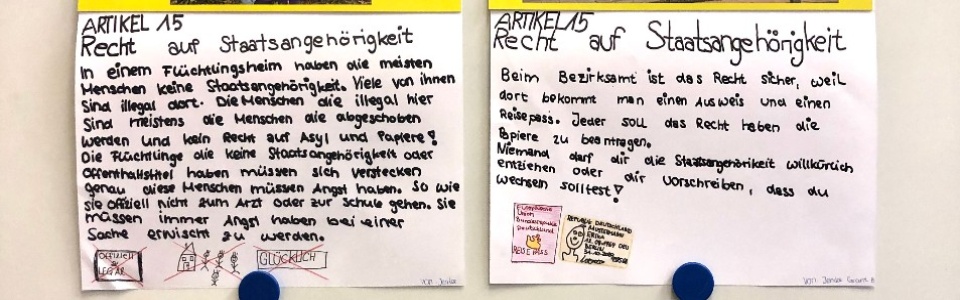 ARTIKEL 15
Recht auf Staatsangehörigkeit
In einem Flüchtlingsheim haben die meisten
Menschen keine Staatsangehörigkeit. Viele von ihnen
sind illegal dort. Die Menschen die illegal hier
sind meistens die Menschen die abgeschoben
werden und kein Recht auf Asyl und Papiere!
Die Flüchtlinge die keine Staatsangehörigkeit oder
Offenthalltstitel haben müssen sich verstecken
genau diese Menschen müssen Angst haben. So wie
sie offiziell nicht zum Arzt oder zur Schule gehen. Sie
müssen immer Angst haben bei einer
Sache erwischt zu werden.
Offiziell
LEGAL
GLÜCKLICH
von
ARTIKEL 15
Recht auf Staatsangehörigkeit
Beim Bezirksamt ist das Recht sicher, weil
dort bekommt man einen Ausweis und einen
Reisepass. Jeder soll das Recht haben die
Papiere zu beantragen.
Niemand darf dir die Staatsangehörikeit willkürlich
entziehen oder dir vorschreiben, dass du
wechseln solltest!
Europäische
Union
Bundesrepublik
Deutschland
REISEPASS
DEUTSCHLAND
BERLIN
von